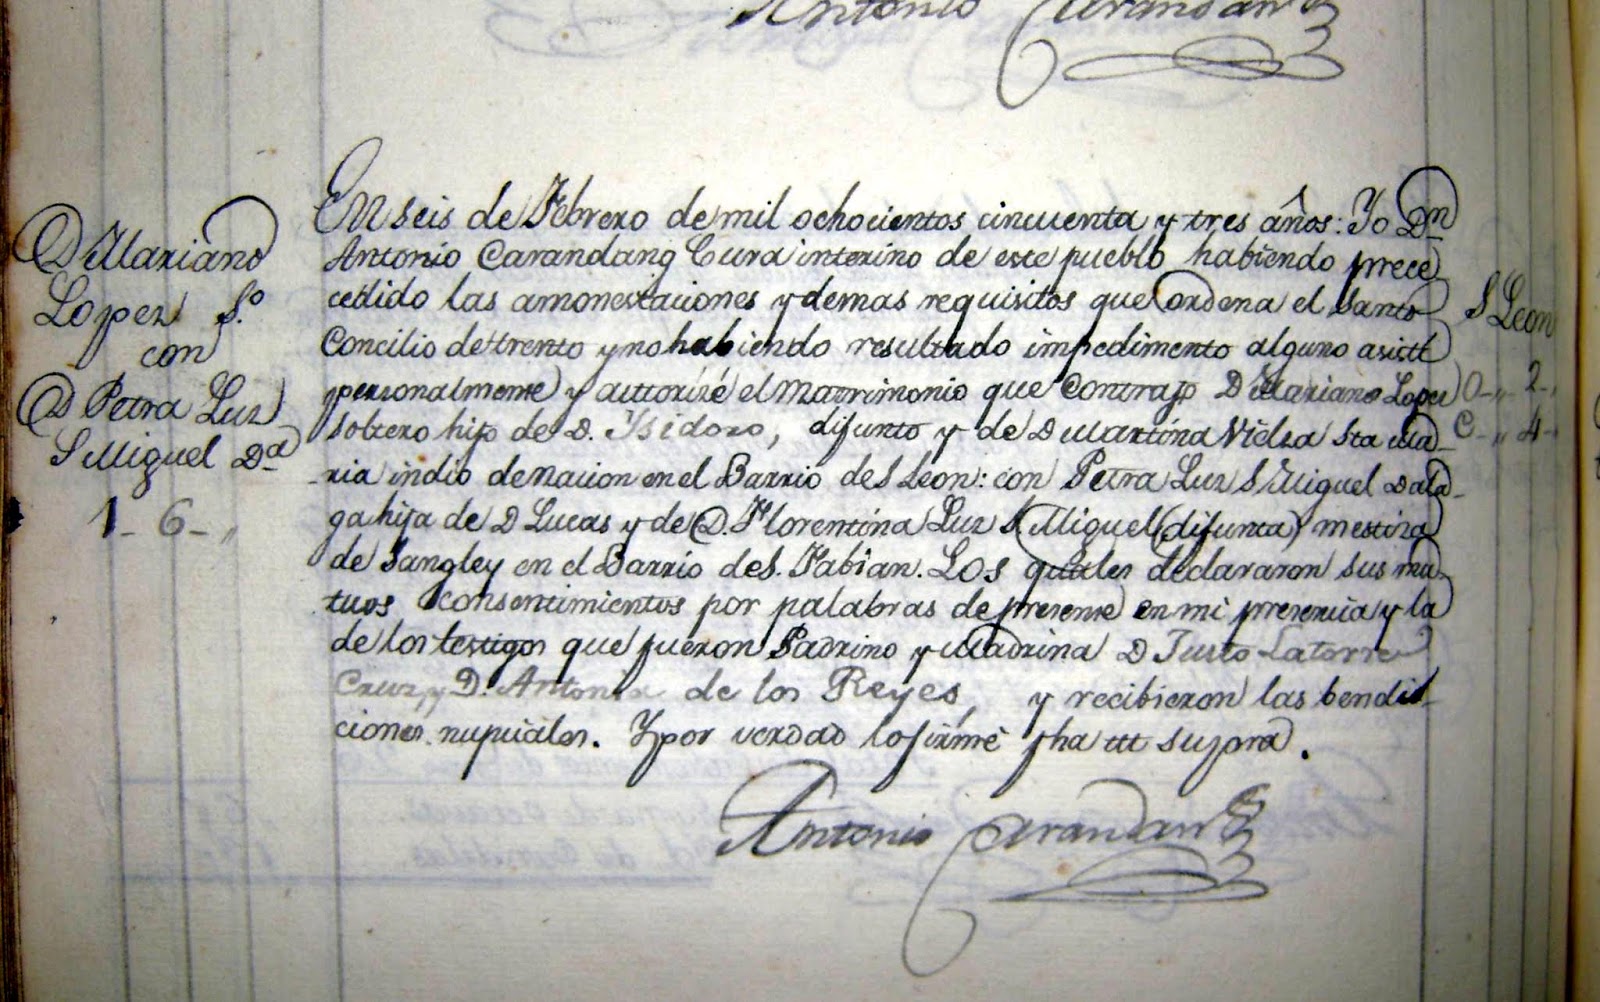 Antonio Carandang
D Mariano
Lopez S.o
con
D Petra Luz
S Miguel Da
1- 6- "
En seis de Febrero de mil ochocientos cincuenta y tres años: Yo Dn
Antonio Carandang Cura interino de este pueblo habiendo prece
cedido las amonestaciones y demas requisitos que ordena el Santo
Concilio de trento y no habiendo resultado impedimento alguno asistt
personalmente y autorizé el Matrimonio que Contrajo D Mariano Lopez
Soltero hijo de D. Ysidoro, difunto y de D Martina Vielza Sta Ma-
ria indio de nacion en el Barrio de S Leon: con Petra Luz S Miguel Dala-
ga hija de D Lucas y de D. Florentina Luz S Miguel (difunta) mestiza
de Sangley en el Barrio de S. Fabian. Los quales declararon sus mu-
tuos consentimientos por palabras de presente en mi presencia y la
de los testigos que fueron Padrino y Madrina D Justo Latorre
Cruz, y D. Antonia de los Reyes, y recibieron las bendi-
ciones nupciales. Y por verdad lo firmé fha ut supra.
S Leon
O- " 2- "
C- " 4- "
Antonio Carandang